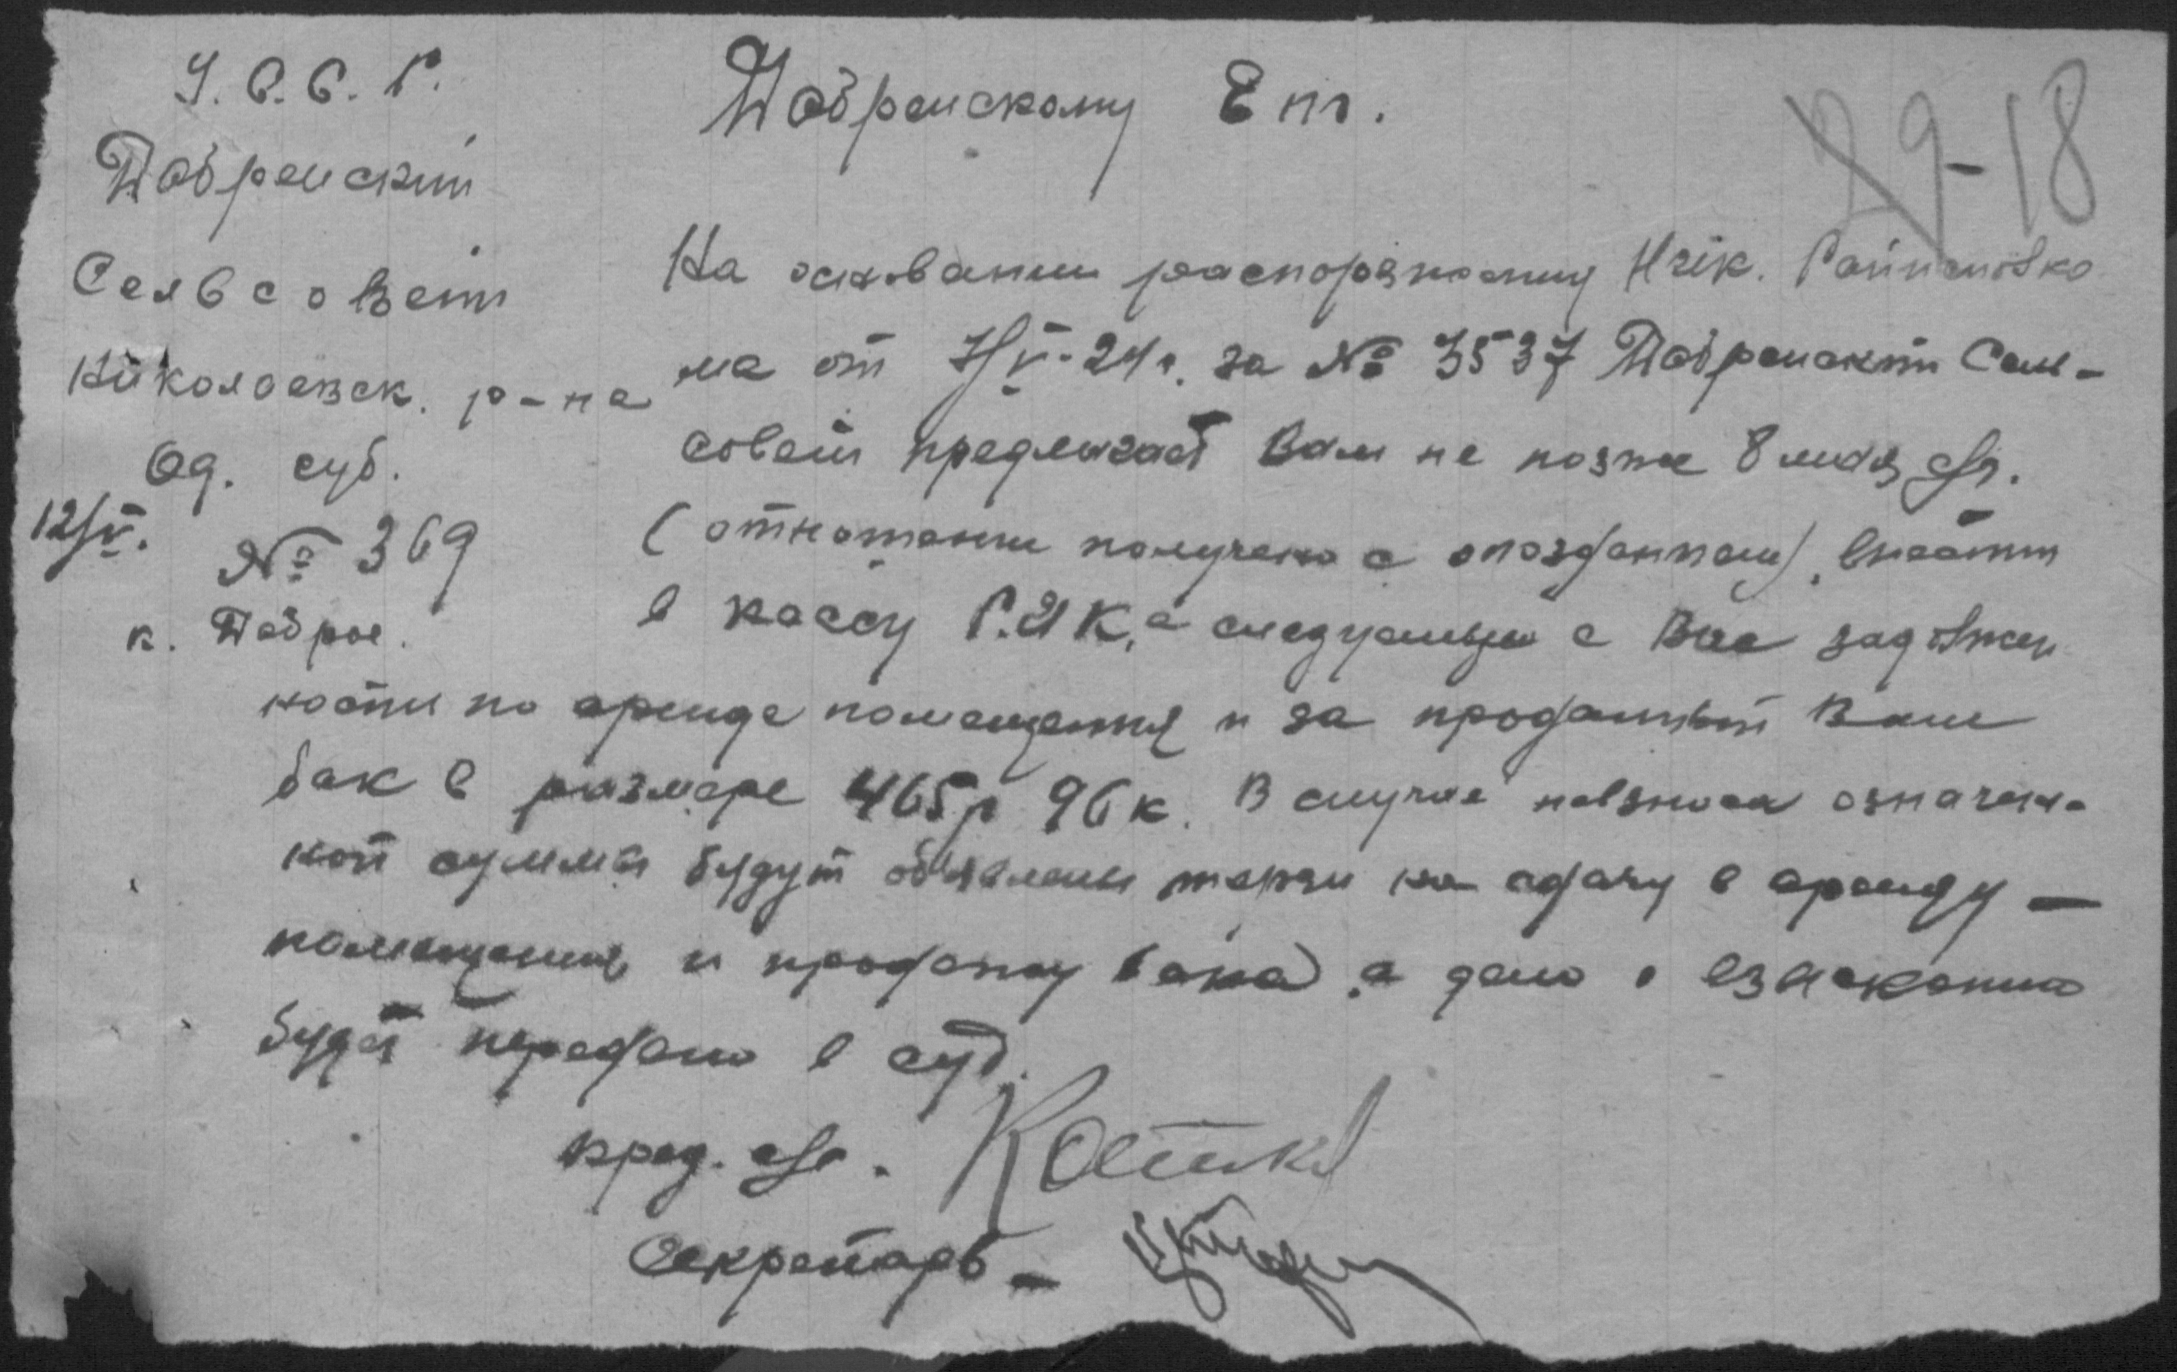 У.С.С.Р.
Добренский
Сельсовет
Николаевск. р-на
Од. губ.
12/V.
№ 369
к. Доброе.
Добренскому Епо.
29-18
На основании распоряжения Ник. Райисполко
ма от 7/V-24г. за № 3537 Добренский Сель-
совет предлагает Вам не позже 8 мая с/г.
(отношение получено с опозданием), внести
в кассу Р.И.К,а следуемые с Вас задолжен
ности по аренде помещения и за проданный Вам
бак в размере 465р 96к. В случае невзноса означен-
ной суммы будут объявлены торги на сдачу в аренду —
помещения и продажу бака, а дело о взыскании
будет передано в суд.
пред. с/с.
Секретарь —